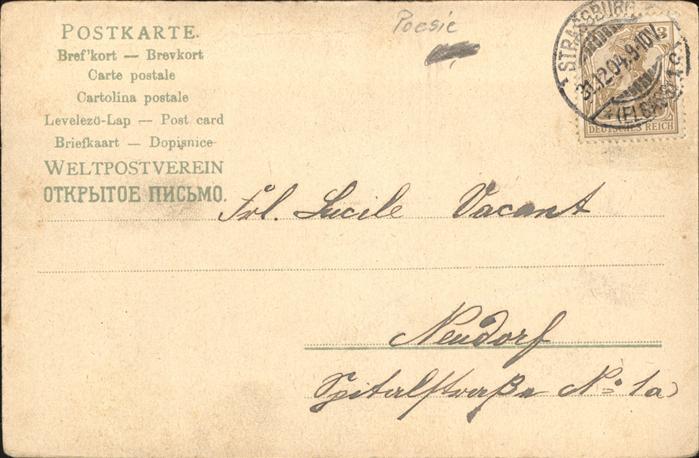 POSTKARTE.
Bref'kort — Brevkort
Carte postale
Cartolina postale
Levelező-Lap — Post card
Briefkaart — Dopisnice
WELTPOSTVEREIN
ОТКРЫТОЕ ПИСЬМО.
Poesie
STRASSBURG
31.12.04.9-10V.
(ELSASS)
3
DEUTSCHES REICH
Frl. Lucile Vacant
Neudorf
Spitalstraße No 1a